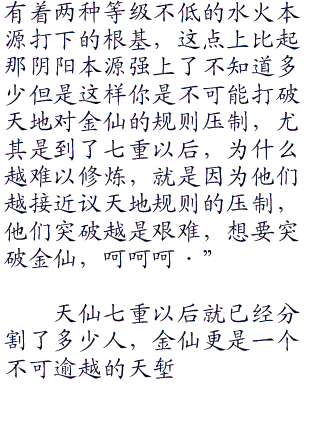 有着两种等级不低的水火本
源打下的根基，这点上比起
那阴阳本源强上了不知道多
少但是这样你是不可能打破
天地对金仙的规则压制，尤
其是到了七重以后，为什么
越难以修炼，就是因为他们
越接近议天地规则的压制，
他们突破越是艰难，想要突
破金仙，呵呵呵·”
天仙七重以后就已经分
割了多少人，金仙更是一个
不可逾越的天堑